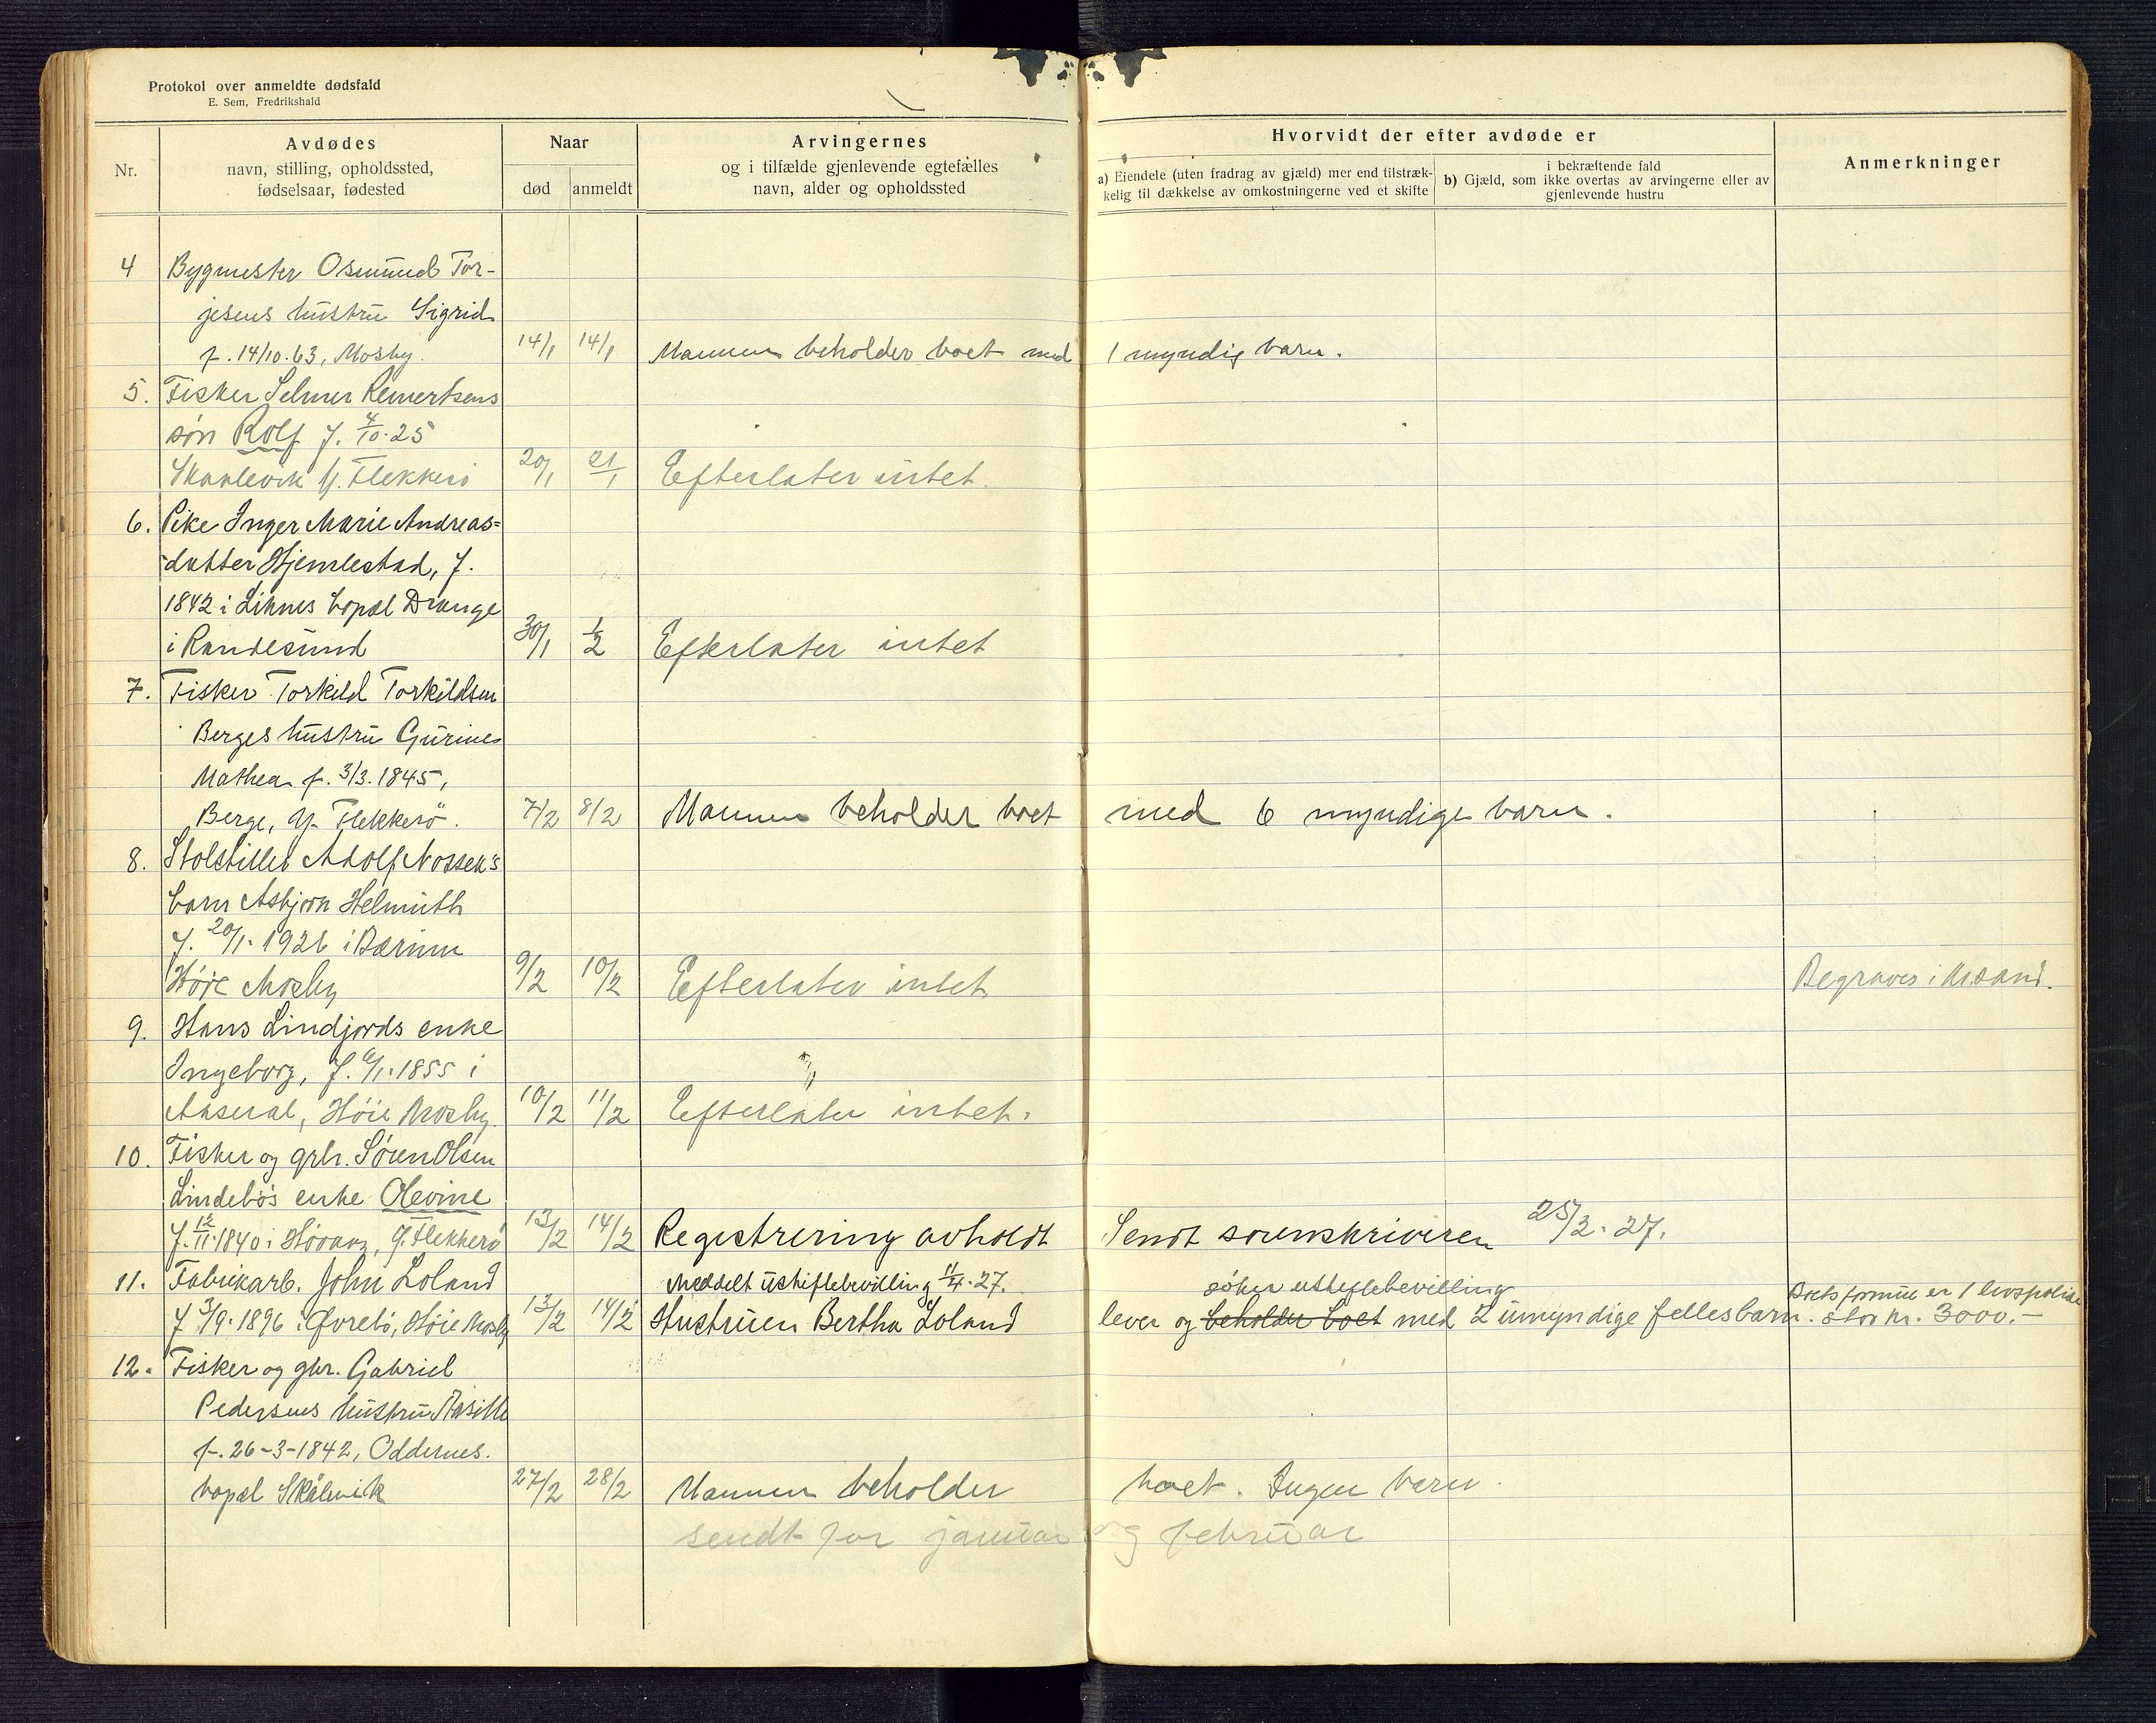 Protokol over anmeldte dødsfald
E. Sem, Fredrikshald
Nr.
Avdødes
navn, stilling, opholdssted,
fødselsaar, fødested
Naar
død
anmeldt
Arvingernes
og i tilfælde gjenlevende egtefælles
navn, alder og opholdssted
Hvorvidt der efter avdøde er
a) Eiendele (uten fradrag av gjæld) mer end tilstræk-
kelig til dækkelse av omkostningerne ved et skifte
i bekræftende fald
b) Gjæld, som ikke overtas av arvingerne eller av
gjenlevende hustru
Anmerkninger
4 Bygmester Osmund Tor-
jesens hustru Sigrid
f. 14/10.63, Mosby. 14/1 14/1 Mannen beholder boet med 1 myndig barn.
5. Fisker Selmer Remertsens
søn Rolf f. 4/10.25
Skaalevik p. Flekkerø 20/1 21/1 Efterlater intet.
6. Pike Inger Marie Andreas=
datter Hjemlestad, f.
1842 i Liknes bopæl Drange
i Randesund 30/1 1/2 Efterlater intet
7. Fisker Torkild Torkildsen
Berges hustru Gurine
Mathea f. 3/3.1845,
Berge, p. Flekkerø. 7/2 8/2 Mannen beholder boet med 6 myndige barn.
8. Adolf Nossek's
barn Asbjørn Helmuth
f. 20/1.1926 i Bærum
Høie Mosby 9/2 10/2 Efterlater intet Begraves i Kr.sand.
9. Hans Lindjords enke
Ingeborg, f. 6/1.1855 i
Aaseral, Høie Mosby. 10/2 11/2 Efterlater intet.
10. Fisker og grbr. Søren Olsen
Lindebøs enke Olevine
f. 12/11.1840 i p. Flekkerø 13/2 14/2 Registrering avholdt Sendt sorenskriveren 25/2.27.
11. Fabrikarb. John Loland Meddelt uskiftebevilling 11/4.27. søker uskiftebevilling Boets formue er 1 livspolise
f 3/9.1896 i Øvrebø, Høie Mosby 13/2 14/2 Hustruen Bertha Loland lever og beholder boet med 2 umyndige fellesbarn. stor kr. 3000.-
12. Fisker og gbr. Gabriel
Pedersens hustru Aasille
f. 26-3-1842, Oddernes.
bopæl Skålevik 27/2 28/2 Mannen beholder boet. Ingen barn.
sendt for januar og februar